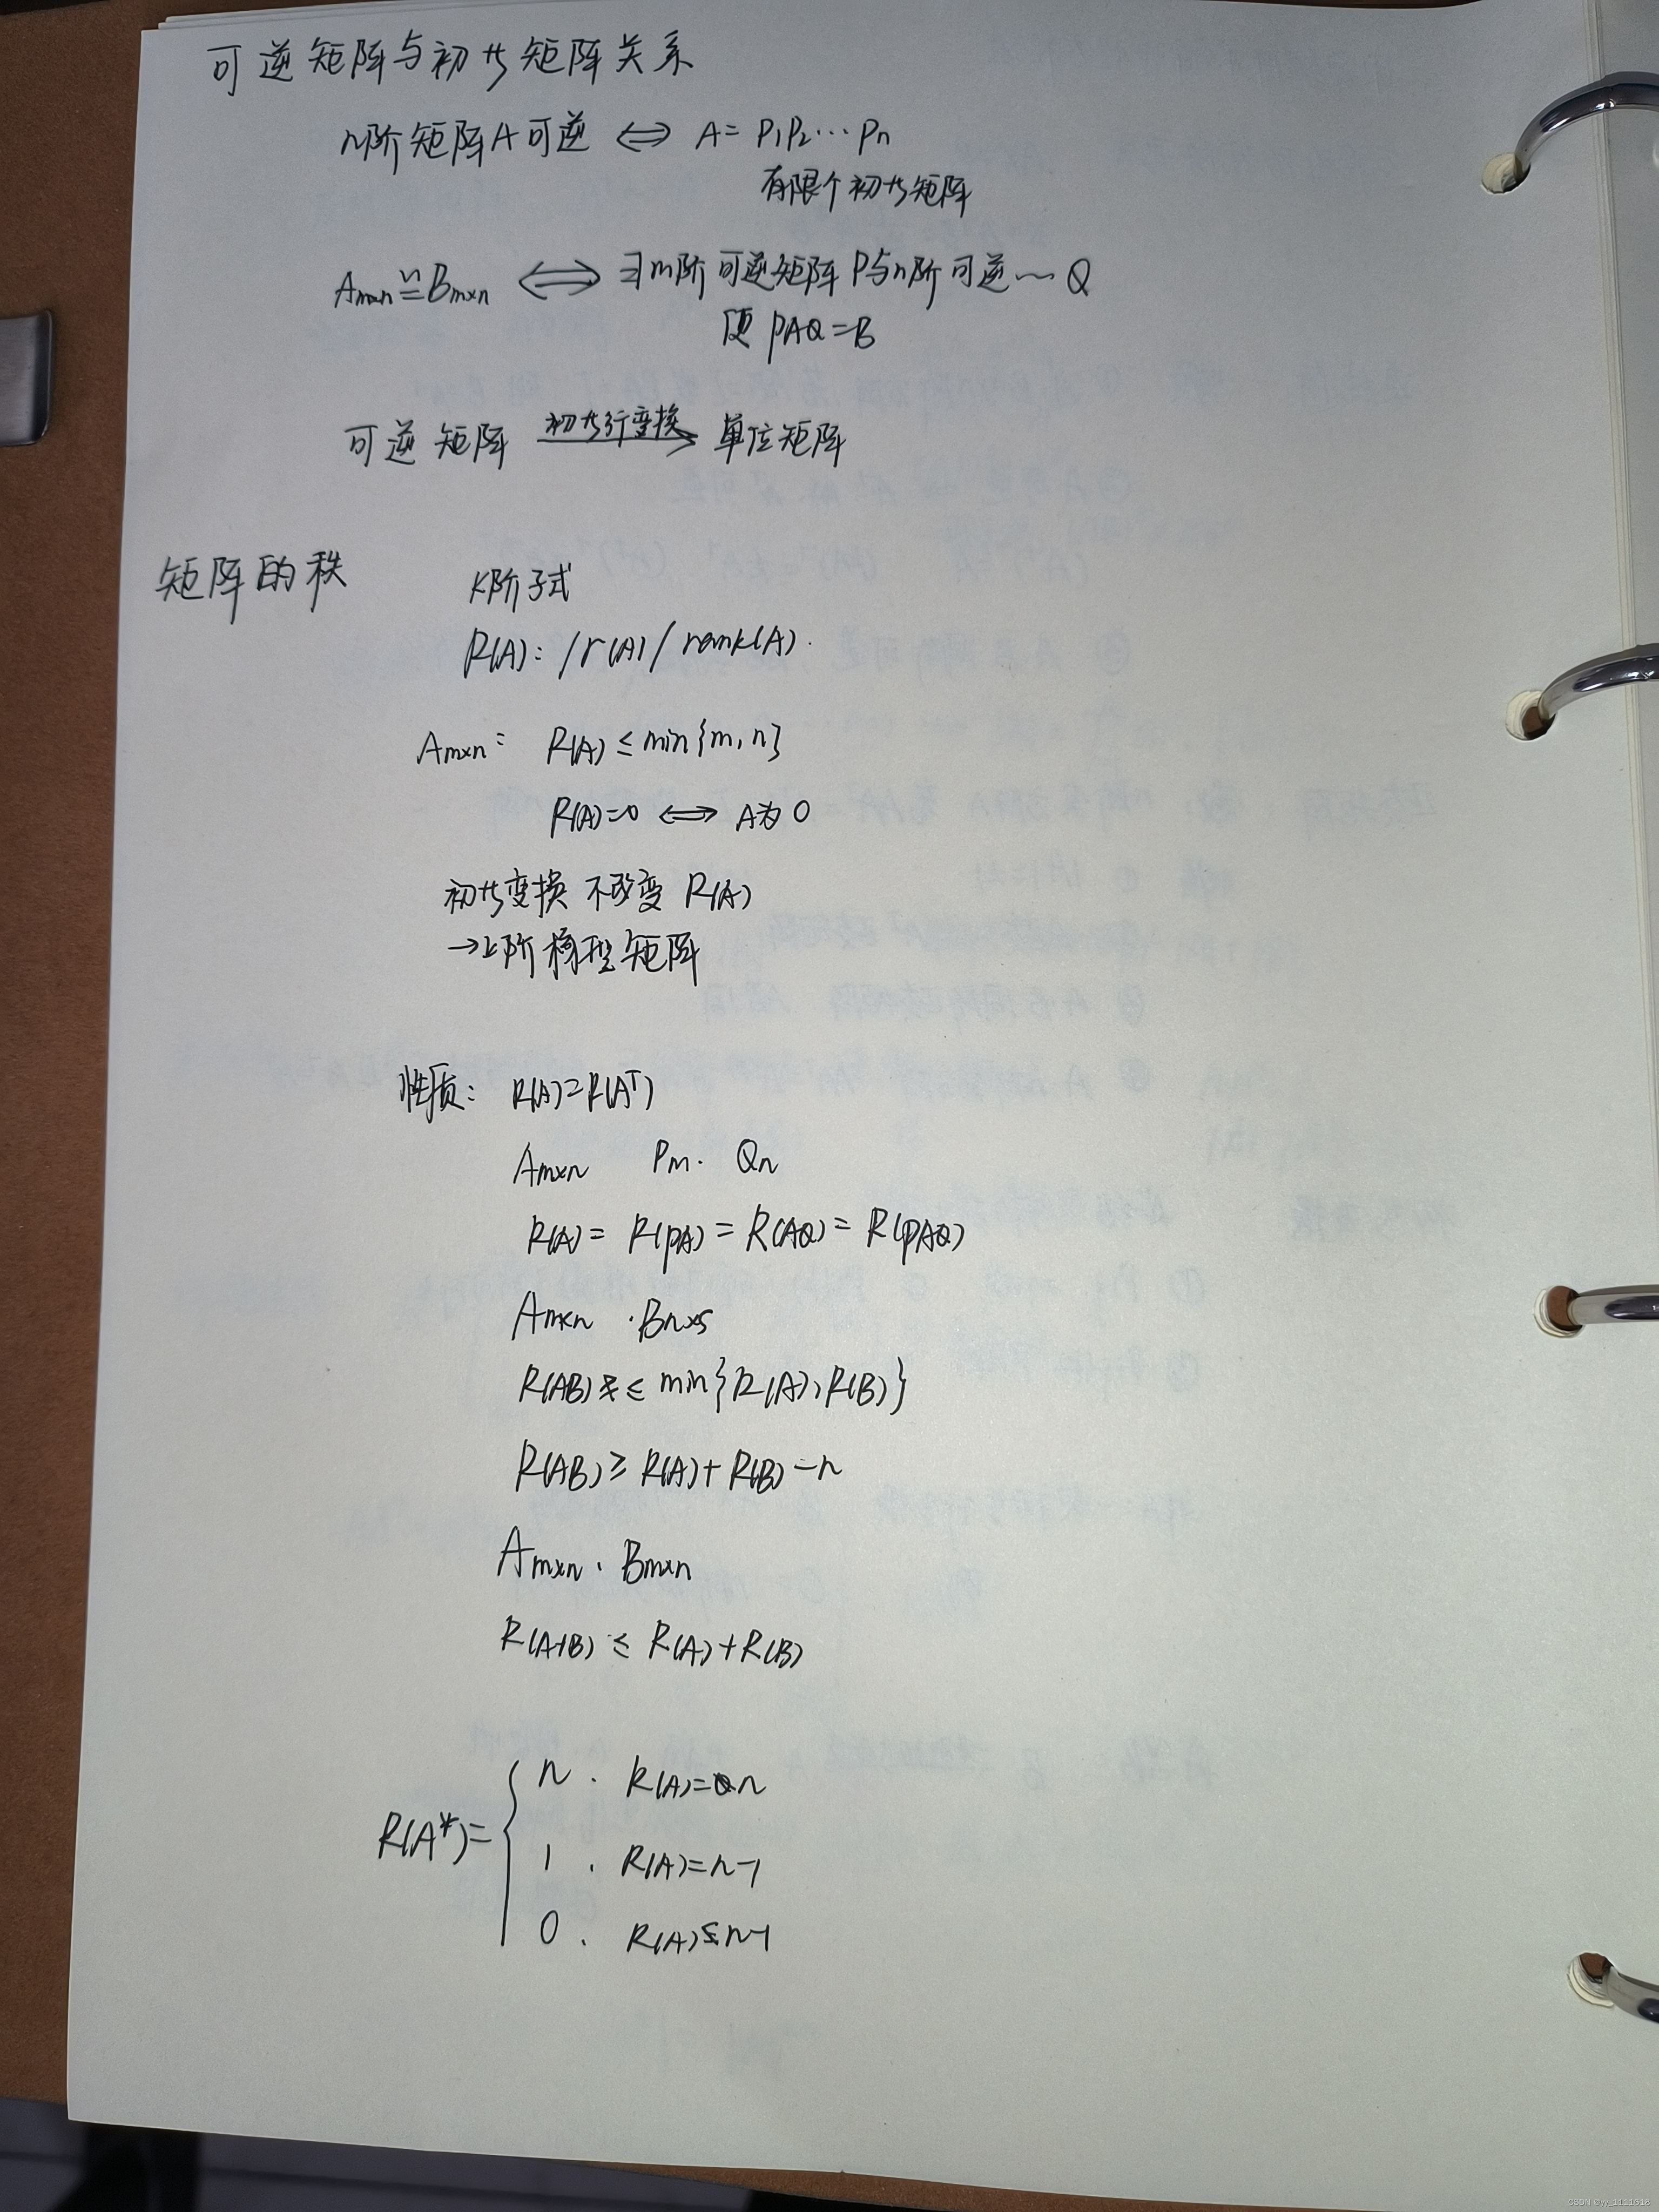 可逆矩阵与初等矩阵关系
n阶矩阵A可逆 ⟺ A= P₁P₂⋯Pn
有限个初等矩阵
Am×n ≅ Bm×n ⟺ ∃m阶可逆矩阵P与n阶可逆~Q
使 PAQ=B
初等行变换
可逆矩阵 → 单位矩阵
矩阵的秩
K阶子式
R(A): /r(A)/rank(A).
Am×n: R(A) ≤ min{m,n}
R(A)=0 ⟺ A为0
初等变换不改变 R(A)
→上阶梯型矩阵
性质: R(A)=R(Aᵀ)
Am×n Pm. Qn
R(A)= R(PA)= R(AQ)= R(PAQ)
Am×n .Bn×s
R(AB) ≤ min{R(A),R(B)}
R(AB) ≥ R(A)+R(B)-n
Am×n . Bm×n
R(A+B) ≤ R(A)+R(B)
n . R(A)=n
R(A*)= { 1 . R(A)=n-1
0 . R(A)≤n-1
CSDN @yy_1111618